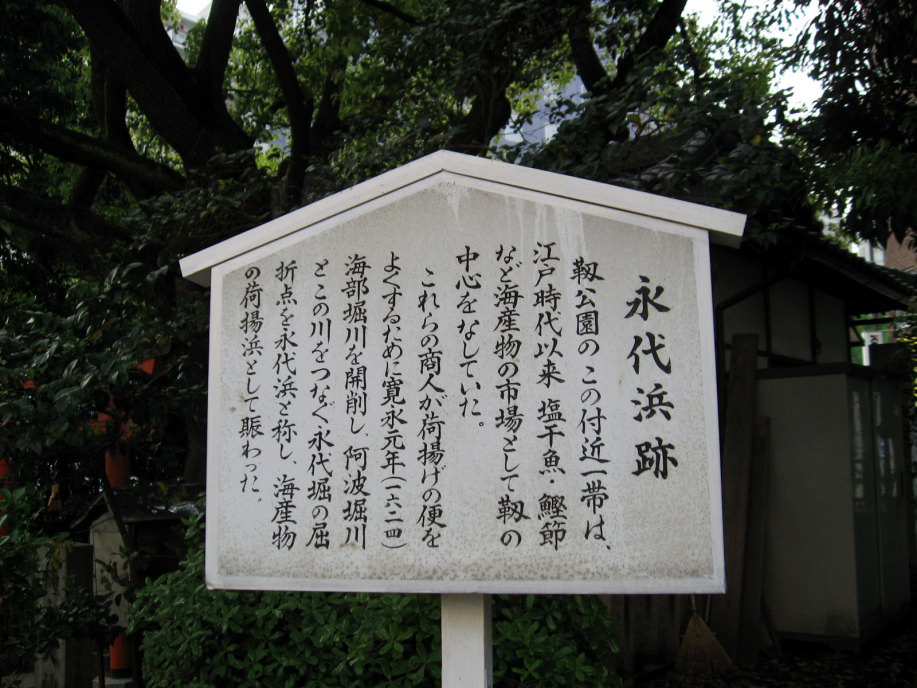 永代浜跡
靱公園のこの付近一帯は、
江戸時代以来、塩干魚・鰹節
など海産物の市場として靱の
中心をなしていた。
これらの商人が荷揚げの便を
よくするために寛永元年(一六二四)
海部堀川を開削し、阿波堀川
とこの川をつなぐ永代堀の屈
折点を永代浜と称し、海産物
の荷揚浜として賑わった。